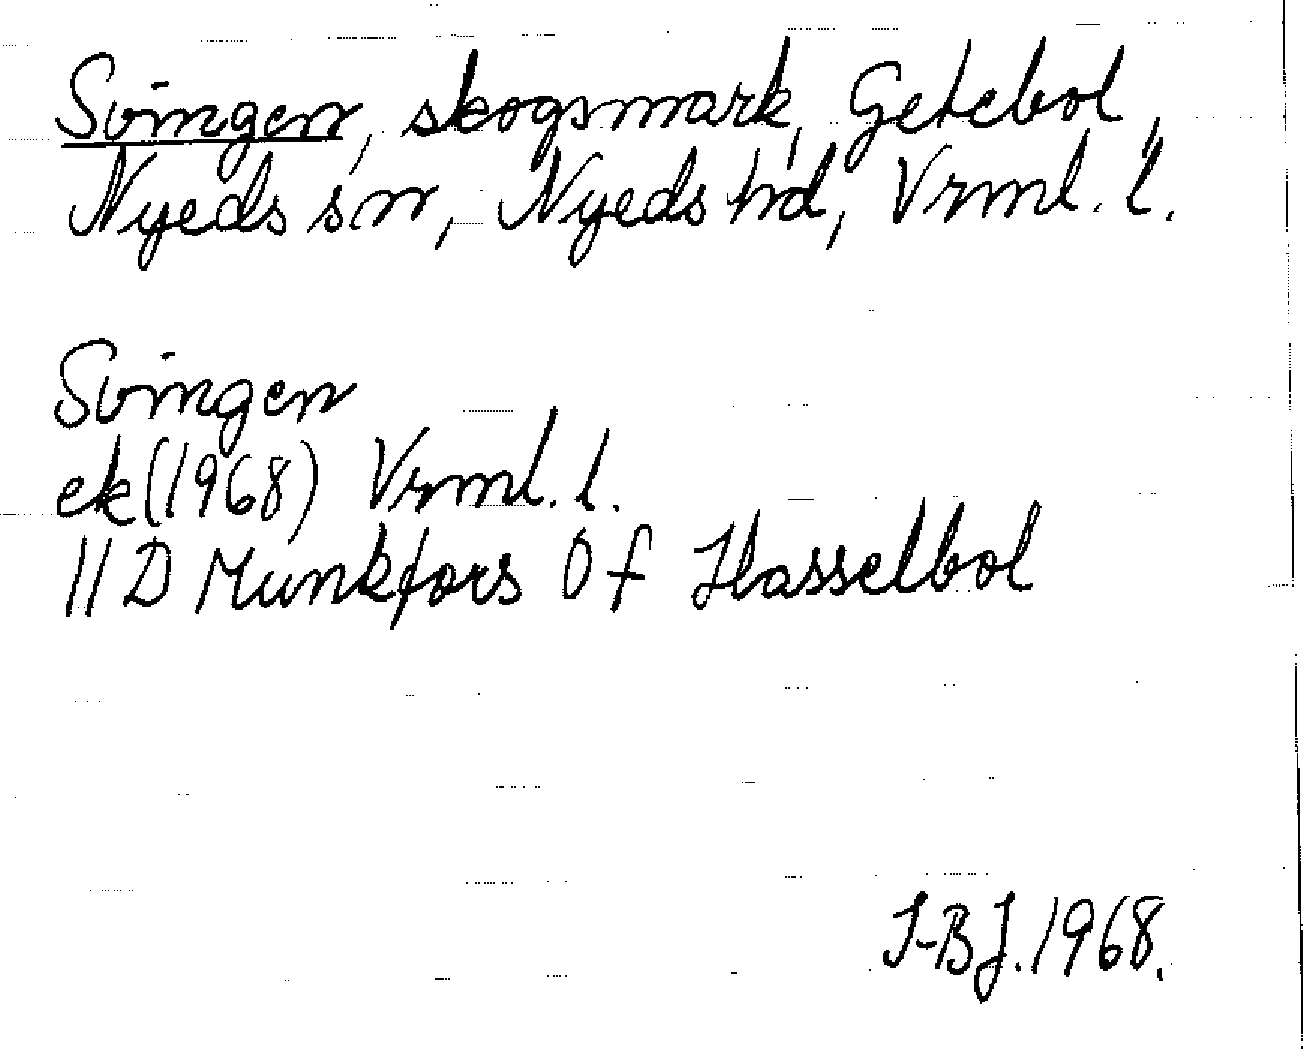 Svingen, skogsmark, Getebol,
Nyeds sn, Nyeds hd, Vrml. l.
Svingen
ek (1968) Vrml. l.
11 D Munkfors 0 f Hasselbol
I-BJ. 1968.